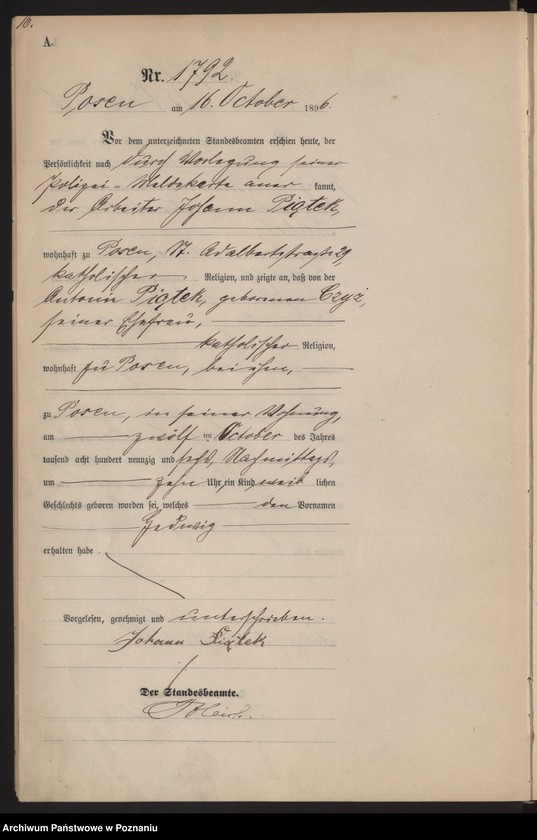 10.
A.
Nr. 1792.
Posen am 16. October 1896.
Vor dem unterzeichneten Standesbeamten erschien heute, der
Persönlichkeit nach durch Vorlegung seiner
Polizei-Meldekarte aner kannt,
der Arbeiter Johann Piątek,
wohnhaft zu Posen, St. Adalbertstraße 29,
katholischer Religion, und zeigte an, daß von der
Antonin Piątek, geborenen Czyż,
seiner Ehefrau,
katholischer Religion,
wohnhaft zu Posen, bei ihm,
zu Posen, in seiner Wohnung,
am zwölf ten October des Jahres
tausend acht hundert neunzig und sechs, Nachmittags,
um zehn Uhr, ein Kind weib lichen
Geschlechts geboren worden sei, welches den Vornamen
Hedwig
erhalten habe.
Vorgelesen, genehmigt und unterschrieben.
Johann Piątek
Der Standesbeamte.
Archiwum Państwowe w Poznaniu